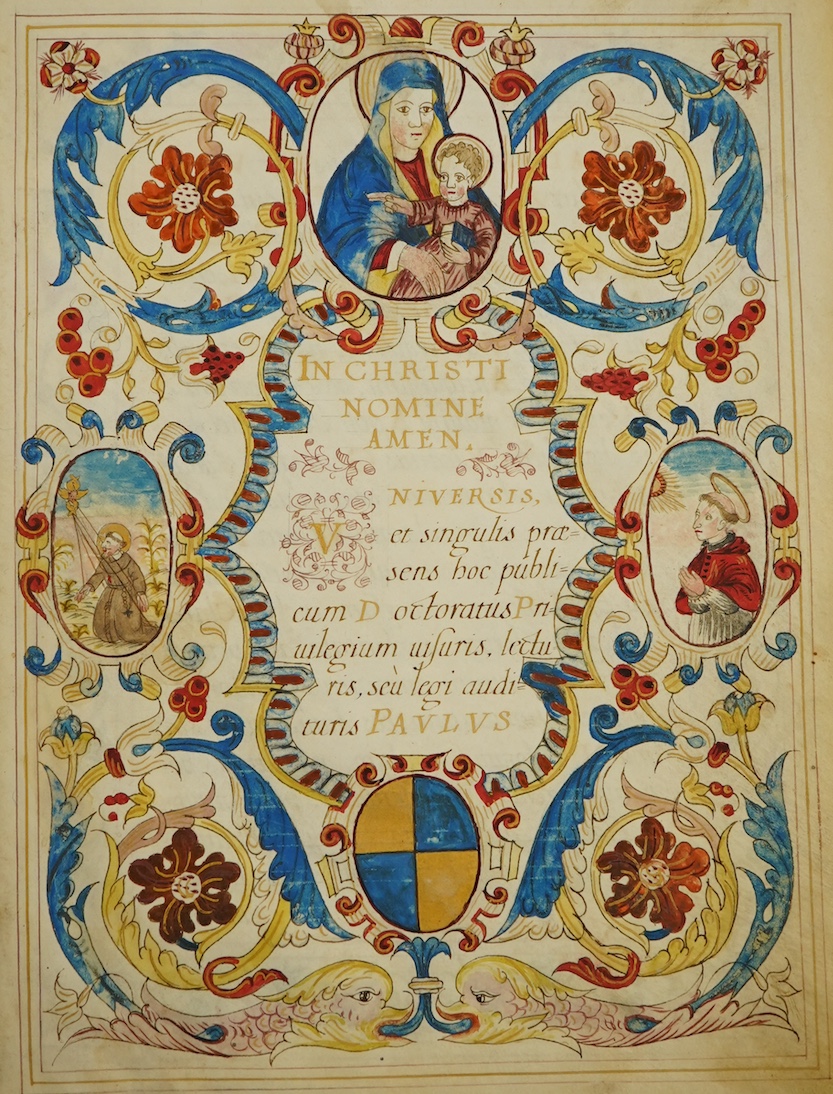 IN CHRISTI
NOMINE
AMEN.
VNIVERSIS,
et singulis præ=
sens hoc publi=
cum Doctoratus Pri=
uilegium uisuris, lectu
ris, seù legi audi=
turis PAVLVS